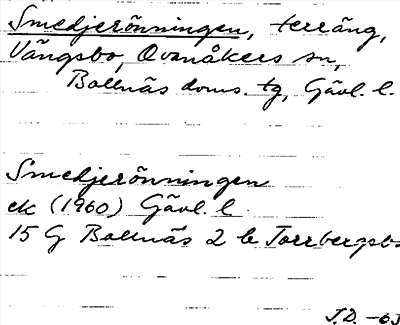 Smedjerönningen, terräng,
Vängsbo, Ovanåkers sn,
Bollnäs doms. tg, Gävl. l.
Smedjerönningen
ek (1960) Gävl. l
15 G Bollnäs 2 b Torrbergsb
J.D. -63